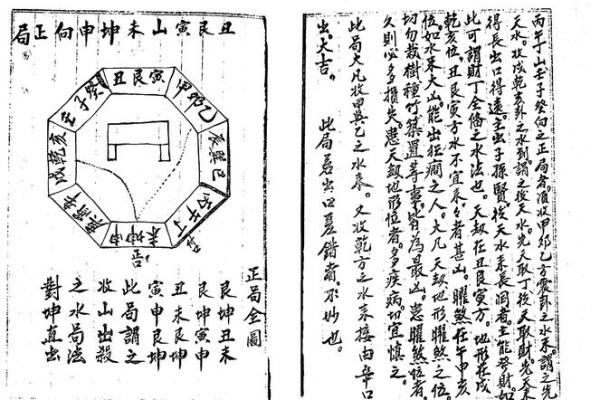 丙午丁山壬子癸向之正局者。須收甲卯乙方震卦之水來。謂之先
天水。收戌乾亥卦之水到。謂之後天水。先天取丁後天取財。先天來
得長。出口得遠。主出子孫賢。後天水來長闊者。主能發財。如
此可謂財丁全備之水法也。天劫在丑艮寅方。地形在戌
乾亥位。丑艮寅方水不宜來。來者甚凶。曜煞在午甲亥
位。如水來大凶。能出狂癎之人。大凡天劫地形曜煞之位。
切勿栽樹種竹築置等事。皆為最凶。患曜煞位者。
久則必多損失。患天劫地形位者。多疾病。切宜慎之。
此局大凡收甲巽乙之水來。又收乾方之水來接。由辛口
出大吉。 此局若出口差錯者。不妙也。
丑艮寅山未坤申向正局
丑艮寅
甲卯乙
辰巽巳
丙午丁
未坤申
庚酉辛
戌乾亥
壬子癸
正局全圖
艮坤丑未
艮坤寅申
丑未艮坤
寅申艮坤
此局謂之
收山出殺
之水局法
對坤直出